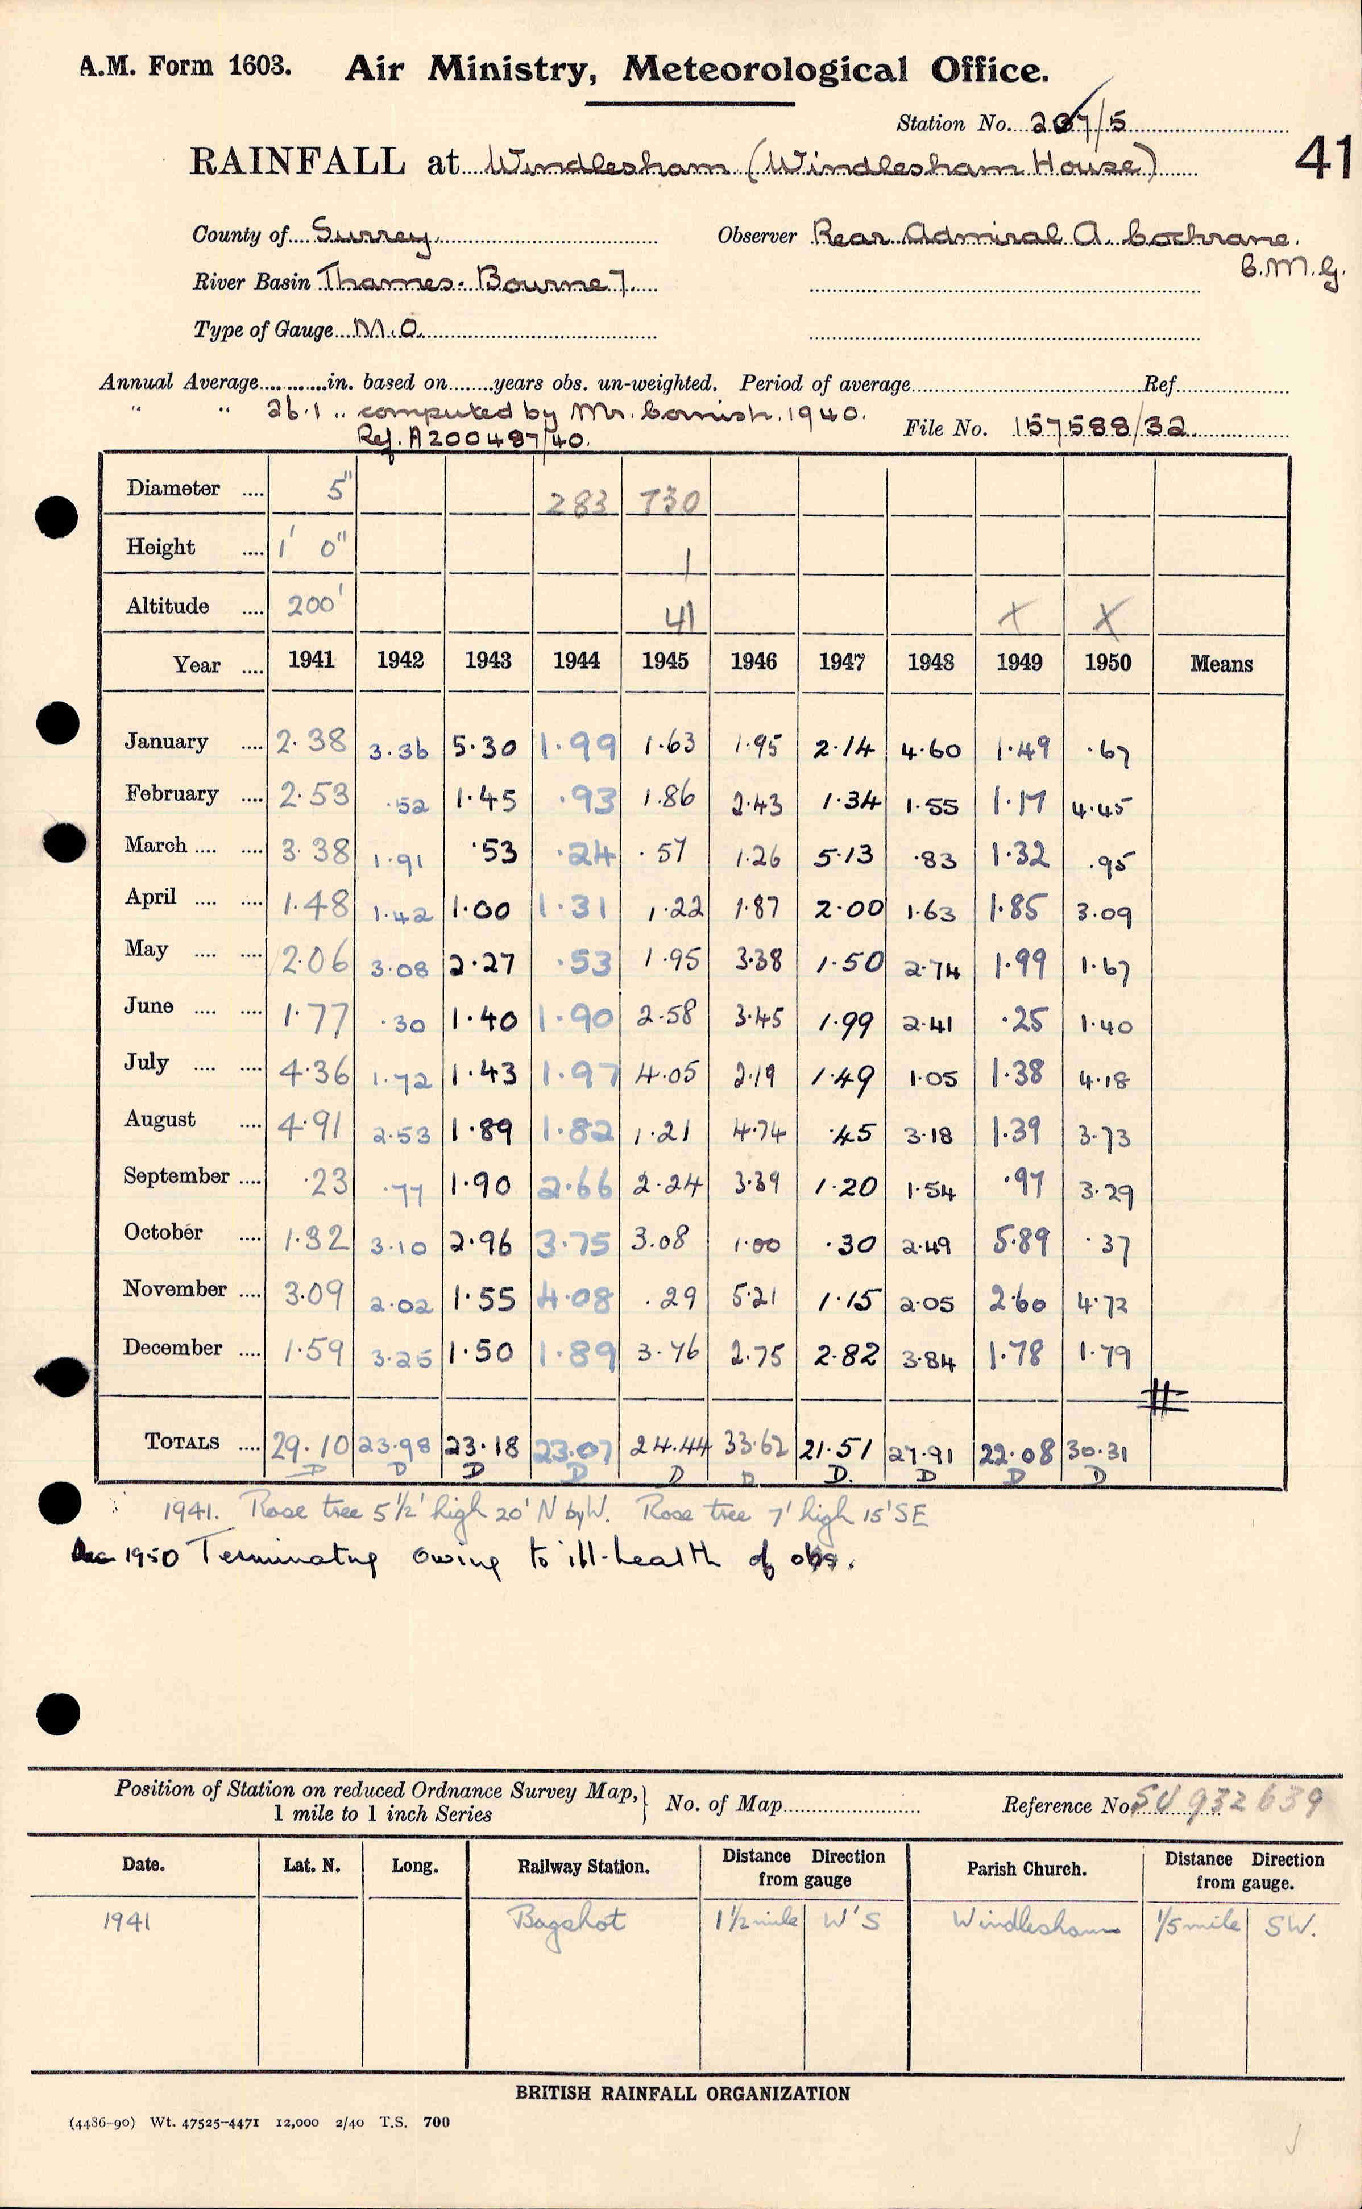 A.M. Form 1603. Air Ministry, Meteorological Office.
Station No. 207/5
RAINFALL at Windlesham (Windlesham House)
41
County of Surrey Observer Rear Admiral A. Cochrane.
C.M.G.
River Basin Thames. Bourne 7
Type of Gauge M.O.
Annual Average............in. based on........years obs. un-weighted. Period of average................Ref................
" " 26.1 " computed by Mr. Cornish. 1940.
Ref. A200487/40. File No. 157588/32
Diameter .... 5" 283 730
Height .... 1' 0" 1
Altitude .... 200' 41 X X
Year .... 1941 1942 1943 1944 1945 1946 1947 1948 1949 1950 Means
January .... 2.38 3.36 5.30 1.99 1.63 1.95 2.14 4.60 1.49 .67
February .... 2.53 .52 1.45 .93 1.86 2.43 1.34 1.55 1.17 4.45
March .... .... 3.38 1.91 .53 .24 .57 1.26 5.13 .83 1.32 .95
April .... .... 1.48 1.42 1.00 1.31 1.22 1.87 2.00 1.63 1.85 3.09
May .... .... 2.06 3.08 2.27 .53 1.95 3.38 1.50 2.74 1.99 1.67
June .... .... 1.77 .30 1.40 1.90 2.58 3.45 1.99 2.41 .25 1.40
July .... .... 4.36 1.72 1.43 1.97 4.05 2.19 1.49 1.05 1.38 4.18
August .... 4.91 2.53 1.89 1.82 1.21 4.74 .45 3.18 1.39 3.73
September .... .23 .77 1.90 2.66 2.24 3.39 1.20 1.54 .97 3.29
October .... 1.32 3.10 2.96 3.75 3.08 1.00 .30 2.49 5.89 .37
November .... 3.09 2.02 1.55 4.08 .29 5.21 1.15 2.05 2.60 4.72
December .... 1.59 3.25 1.50 1.89 3.76 2.75 2.82 3.84 1.78 1.79
TOTALS .... 29.10 23.98 23.18 23.07 24.44 33.62 21.51 27.91 22.08 30.31
D D D D D D D. D D D
1941. Rose tree 5½' high 20' N by W. Rose tree 7' high 15' SE
Dec 1950 Terminating owing to ill-health of obs.
Position of Station on reduced Ordnance Survey Map,
1 mile to 1 inch Series
No. of Map........................ Reference No. SU 932639
Date. Lat. N. Long. Railway Station. Distance from gauge Direction Parish Church. Distance from gauge. Direction
1941 Bagshot 1½ mile W'S Windlesham 1/5 mile SW.
BRITISH RAINFALL ORGANIZATION
(4486-90) Wt. 47525-4471 12,000 2/40 T.S. 700